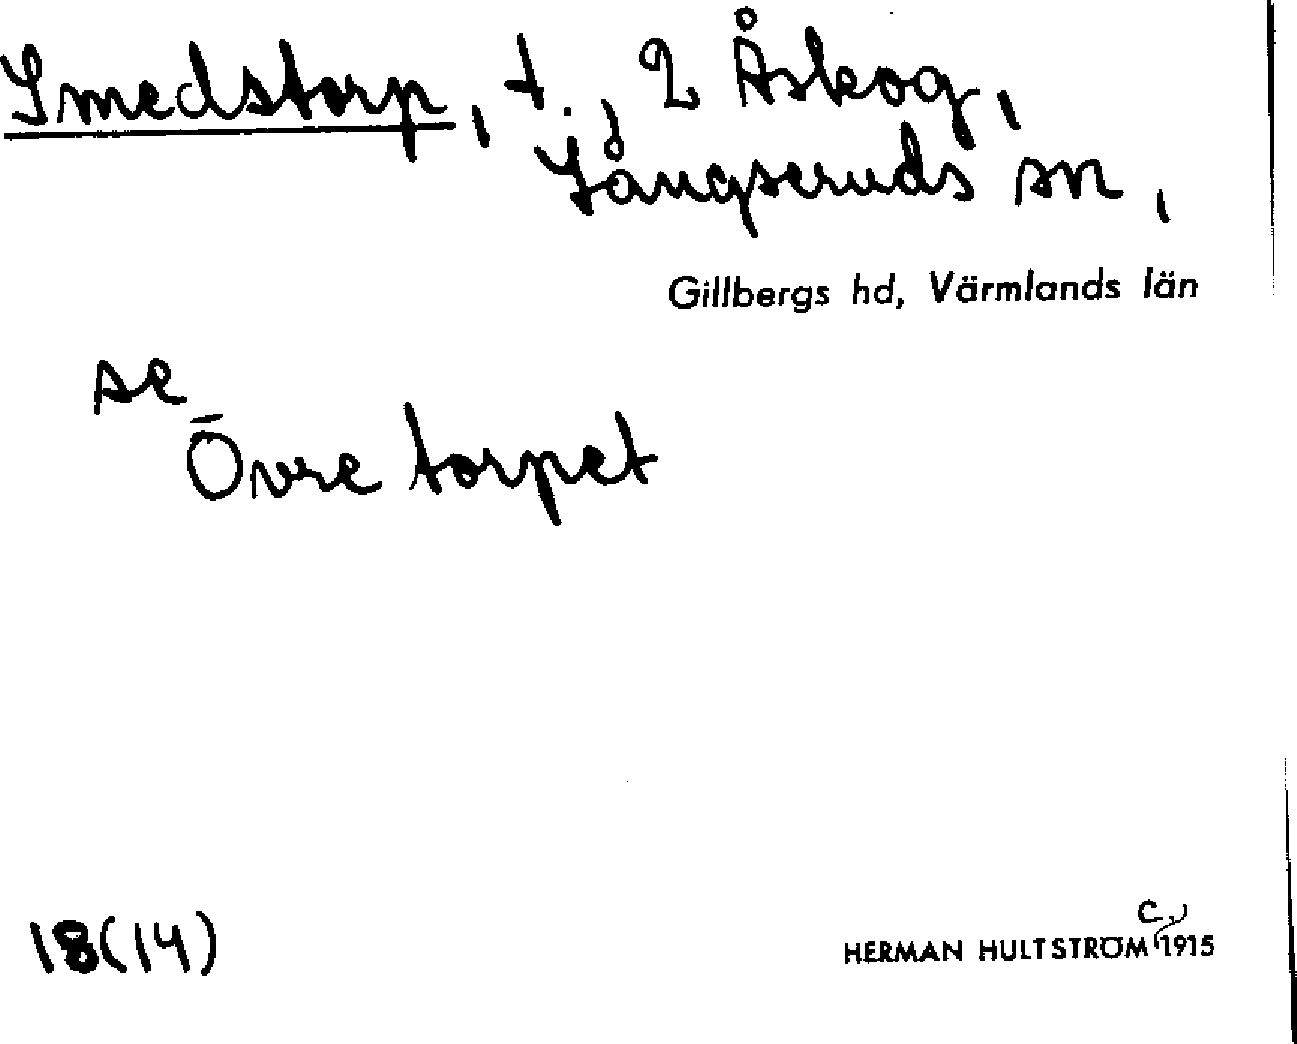 Smedstorp, t., 2 Åskog,
Långseruds sn,
Gillbergs hd, Värmlands län
se
Övre torpet
18(14)
HERMAN HULTSTRÖM c. 1915